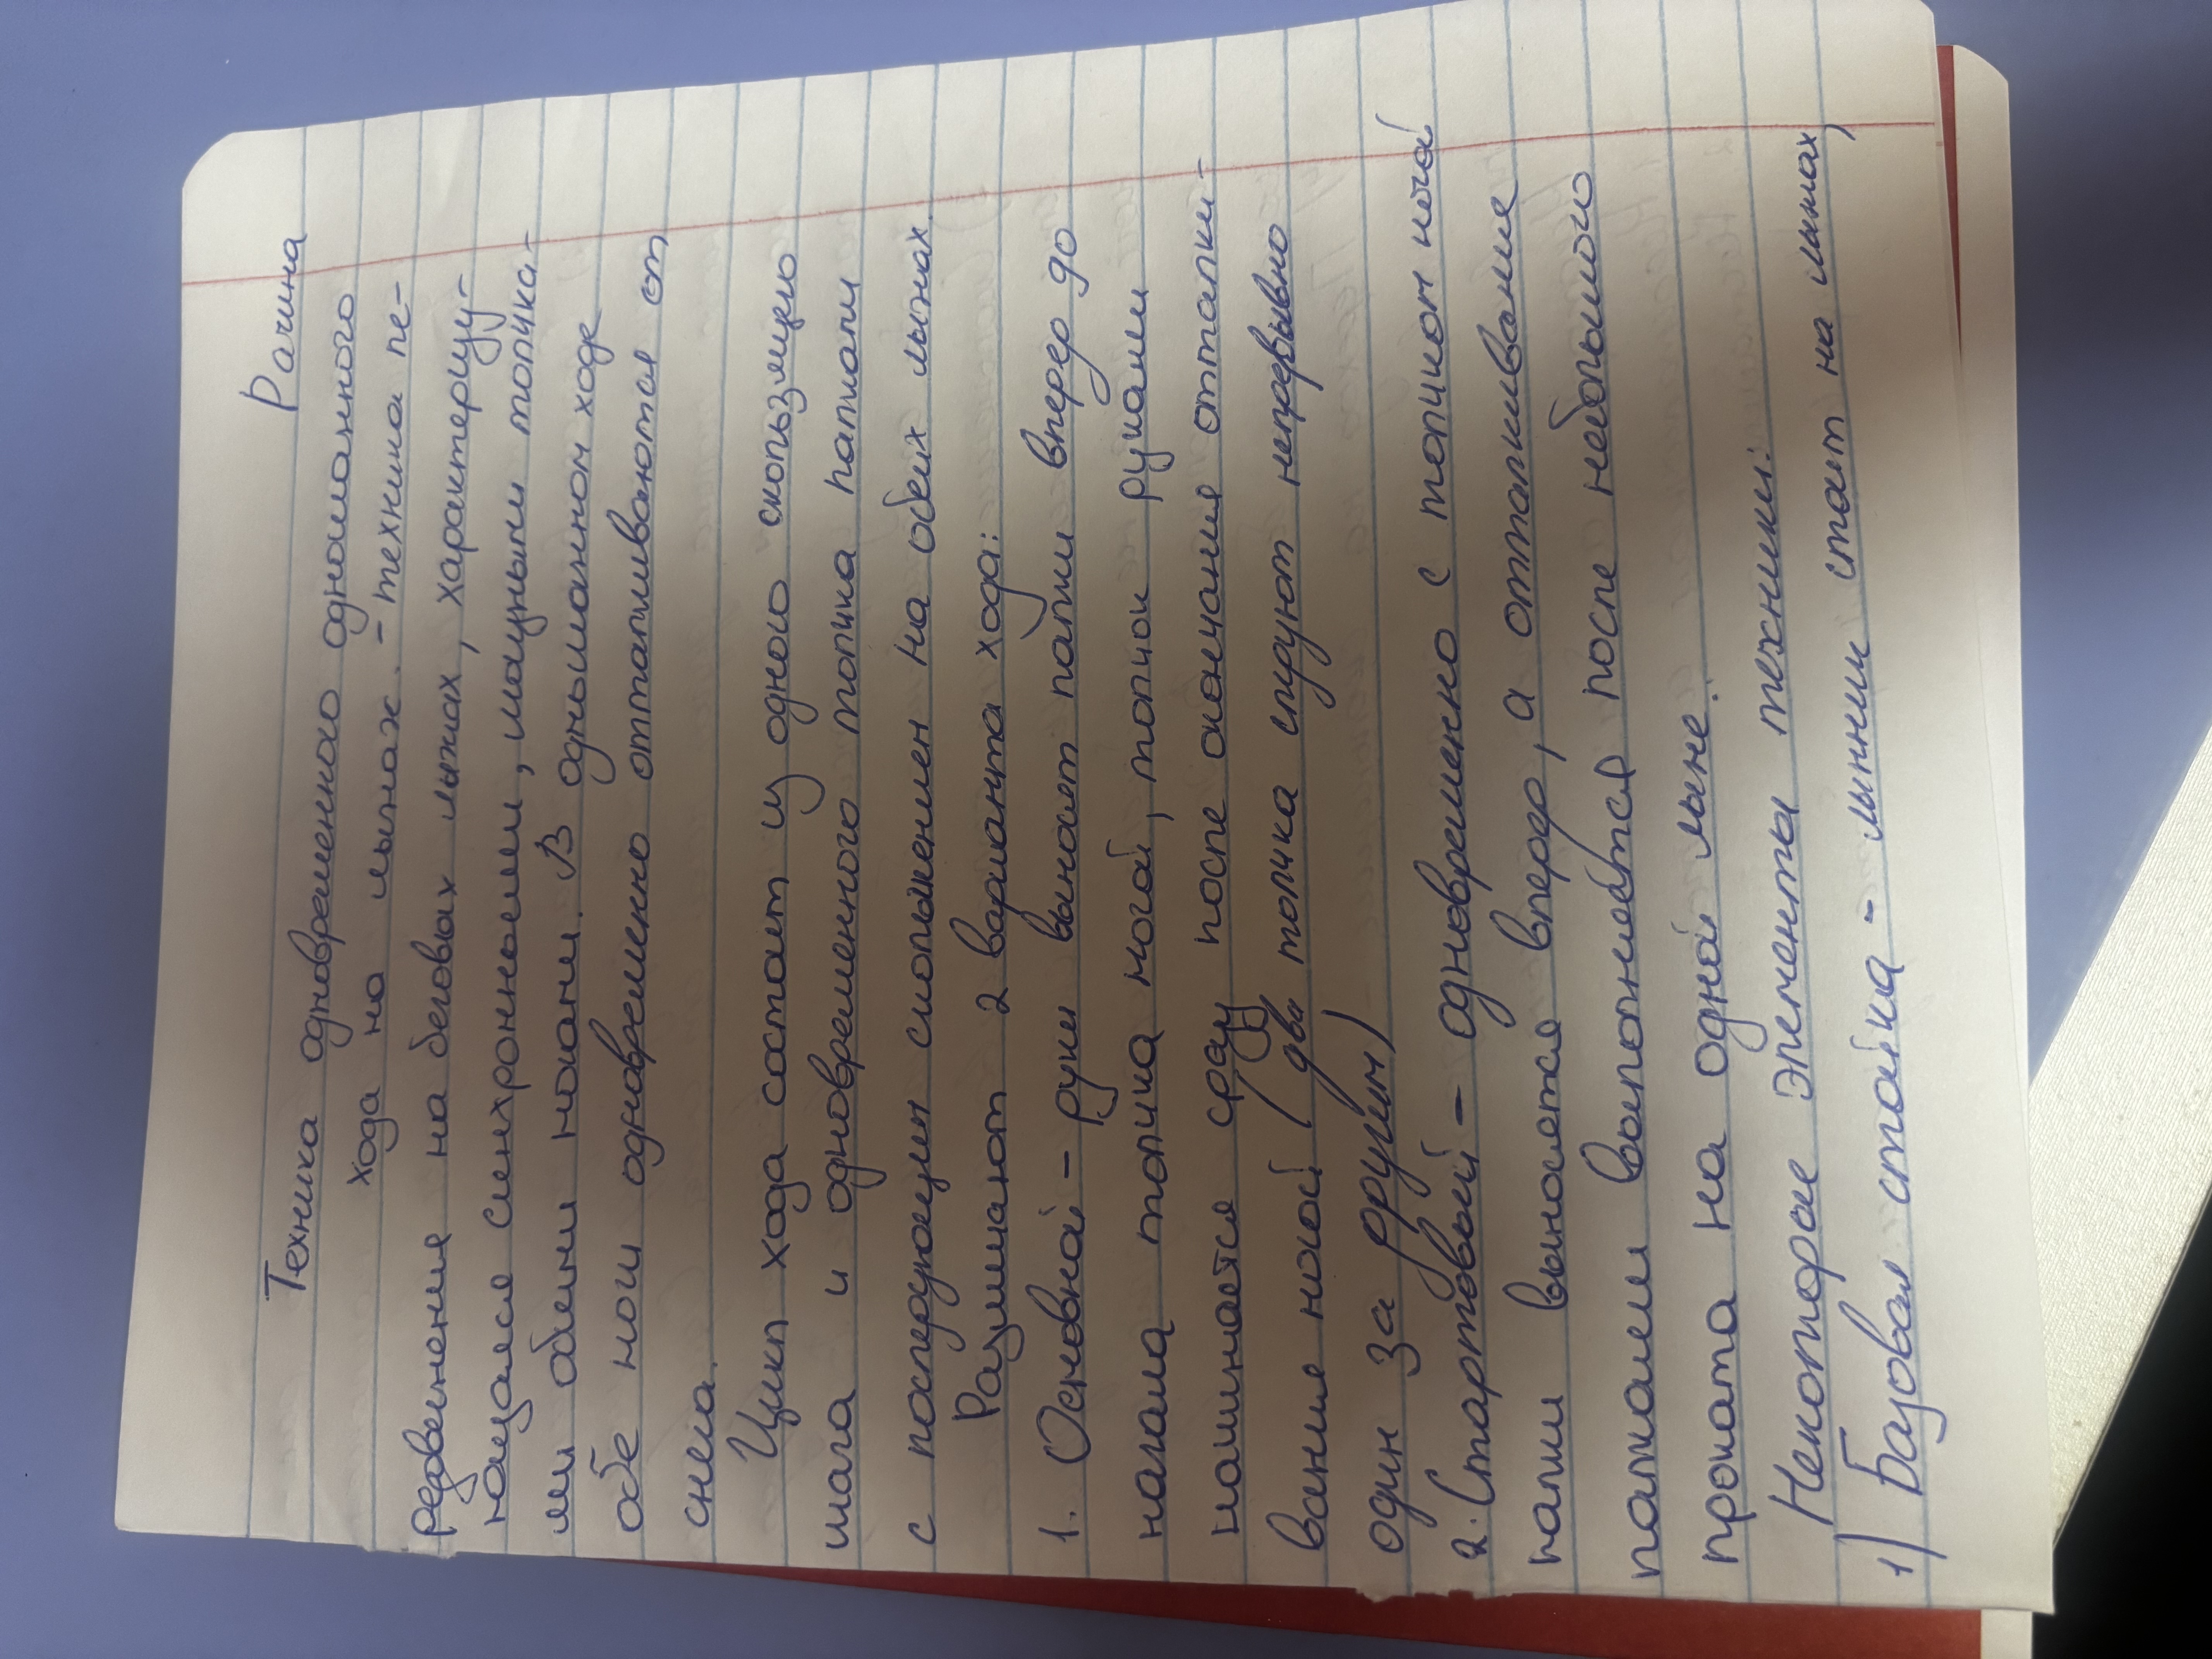 Рачина
Техника одновременного одношажного
хода на лыжах. - техника пе-
редвижения на беговых лыжах, характеризу-
ющаяся синхронными, мощными толчка-
ми обеими ногами. В одношажном ходе
обе ноги одновременно отталкиваются от
снега.
Цикл хода состоит из одного скользящего
шага и одновременного толчка палками
с последующим скольжением на обеих лыжах.
Различают 2 варианта хода:
1. Основной - руки выносят палки вперед до
начала толчка ногой, толчок руками
начинается сразу после окончания отталки-
вание ногой (два толчка следуют непрерывно
один за другим)
2. Стартовый - одновременно с толчком ногой
палки выносятся вперед, а отталкивание
палками выполняется после небольшого
проката на одной лыже.
Некоторые элементы техники:
1) Базовая стойка - лыжник стоит на лыжах,